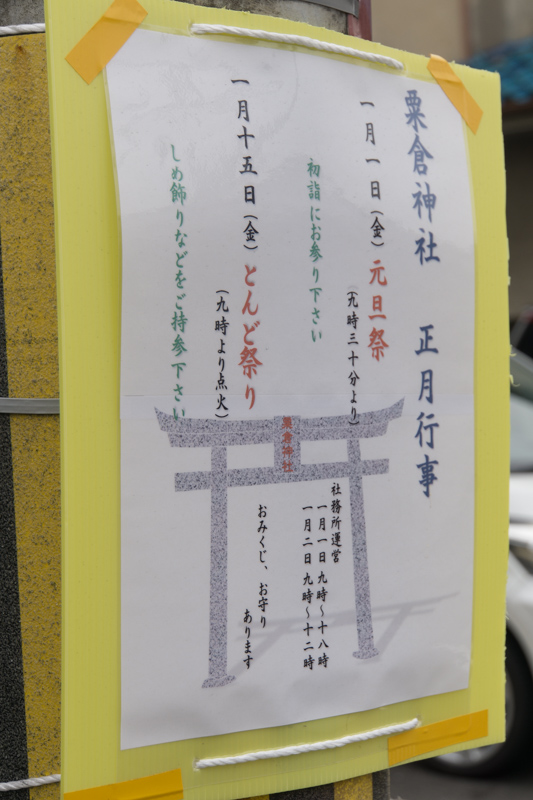 粟倉神社　正月行事
一月一日（金）元旦祭
（九時三十分より）
初詣にお参り下さい
一月十五日（金）とんど祭り
（九時より点火）
しめ飾りなどをご持参下さい
粟倉神社
社務所運営
一月一日 九時～十八時
一月二日 九時～十二時
おみくじ、お守り
あります